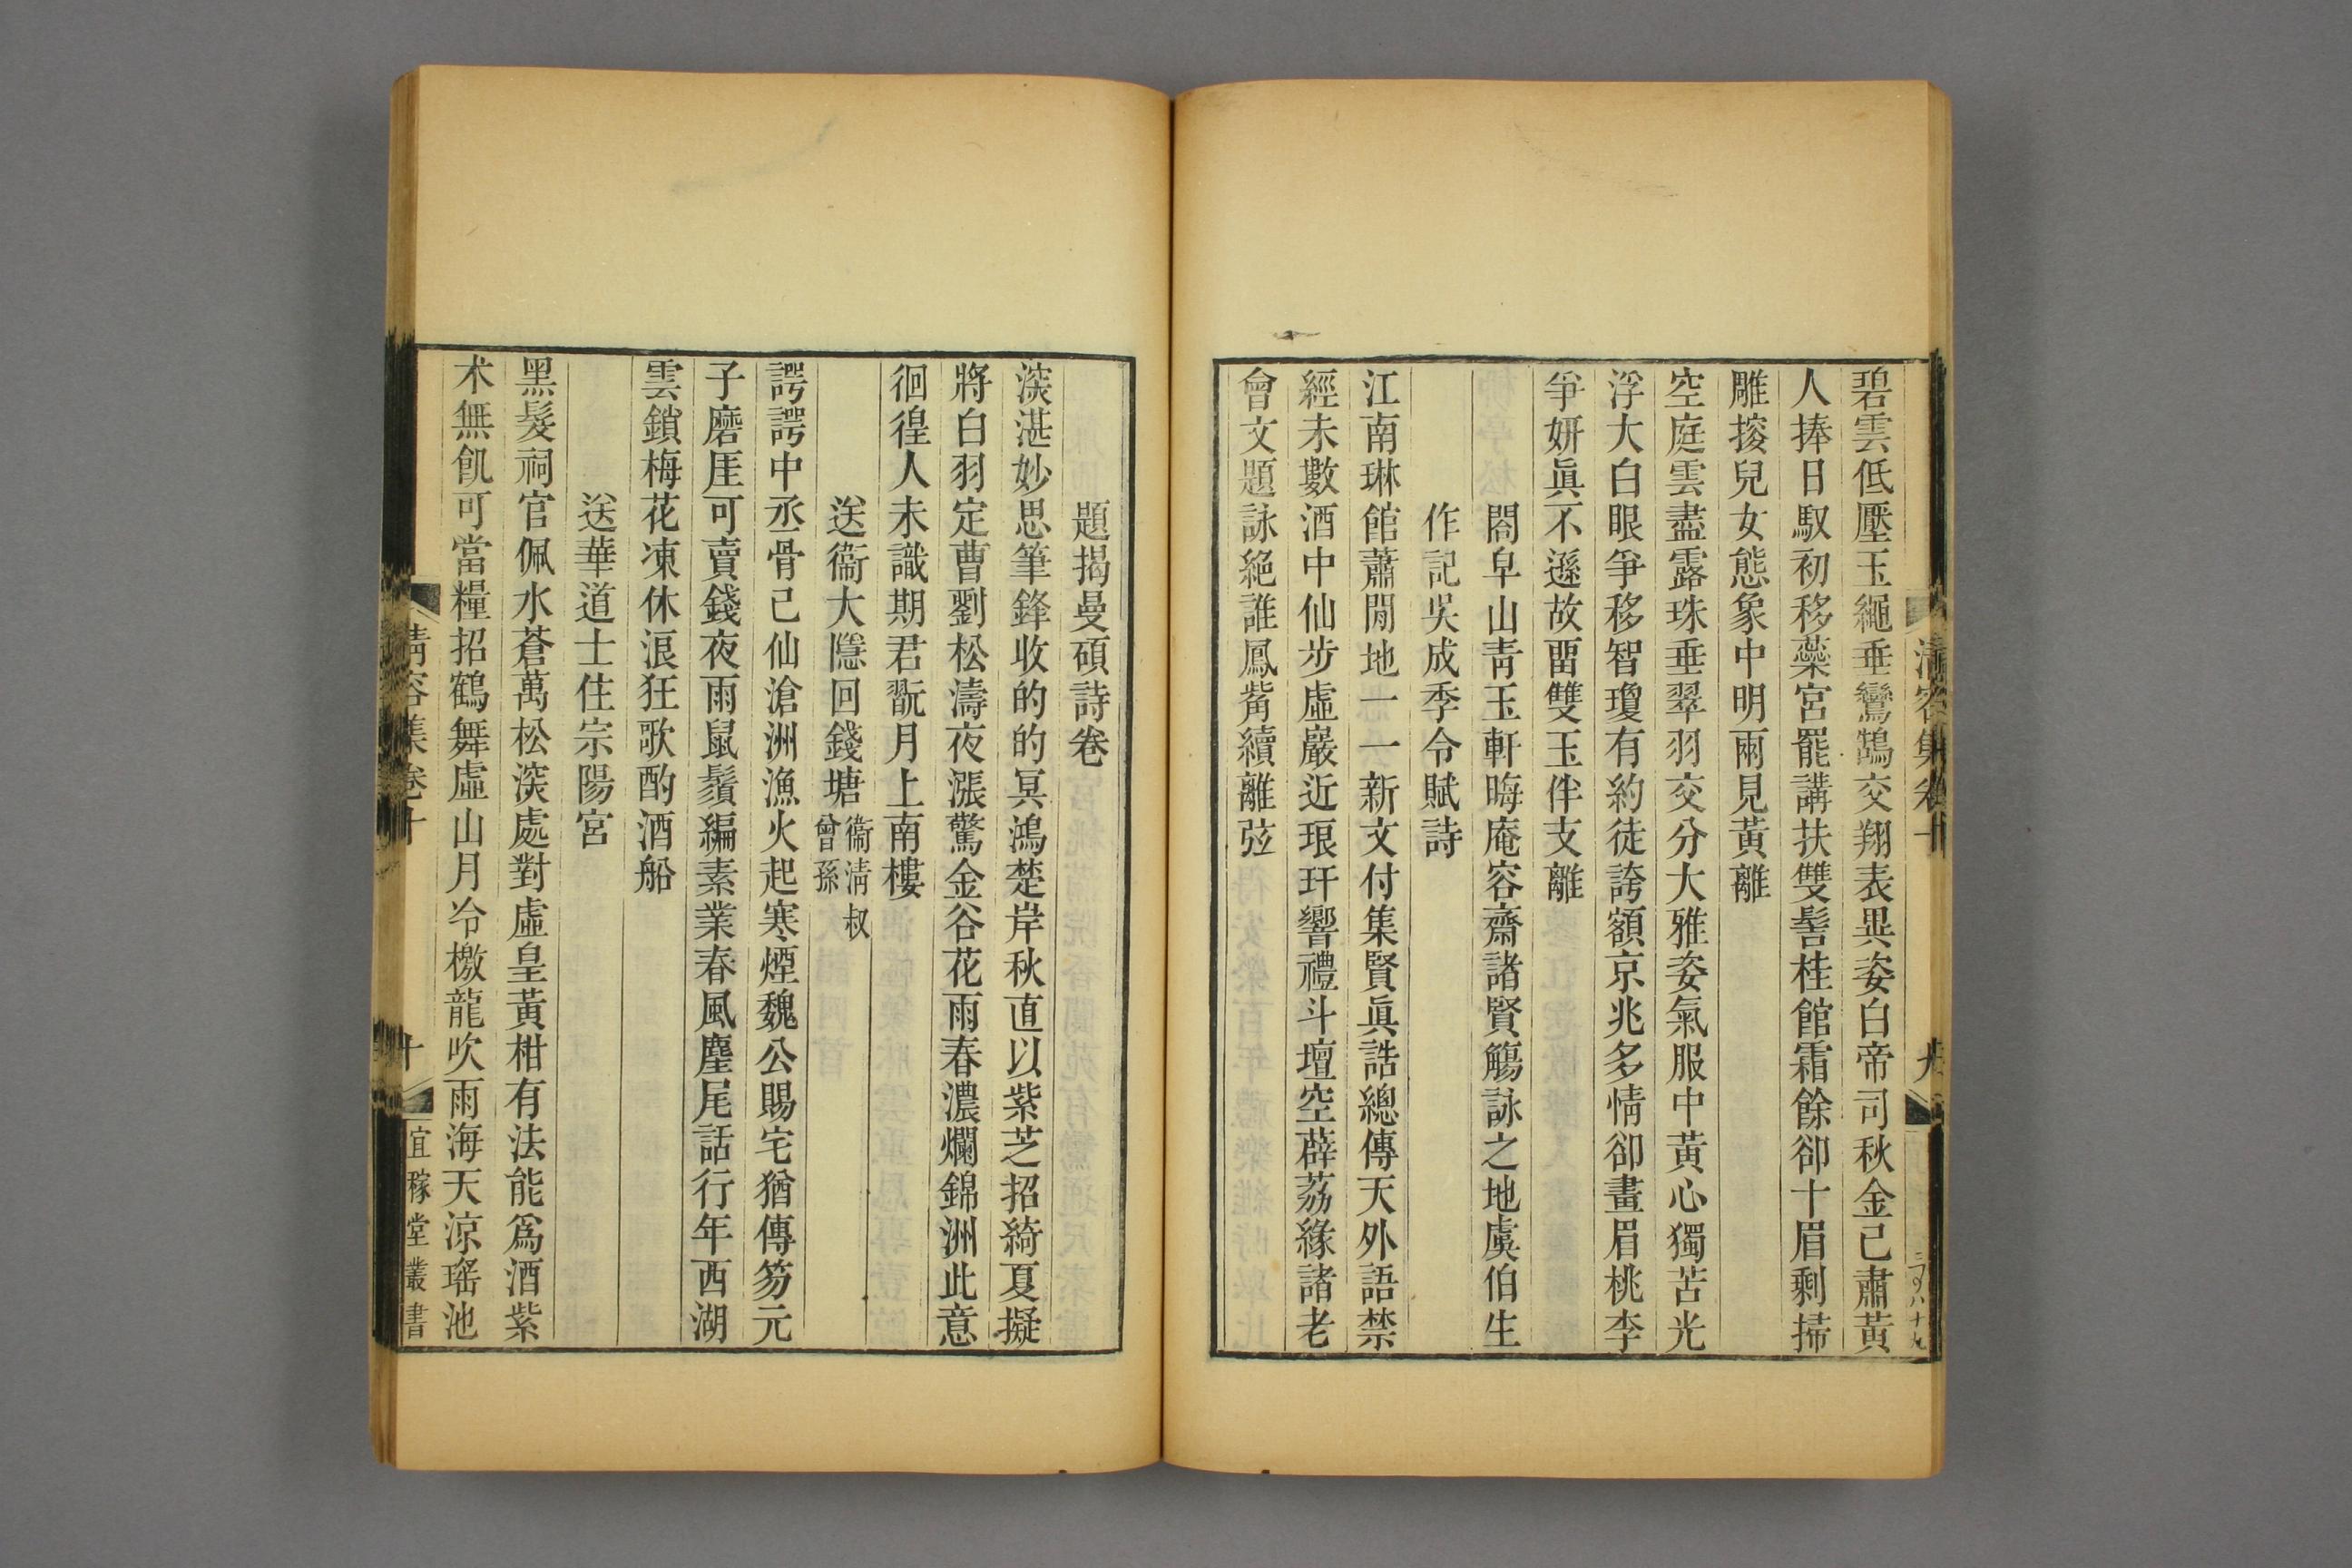 清容集卷十
九
碧雲低壓玉繩垂鸞鵠交翔表異姿白帝司秋金己肅黃
人捧日馭初移蘂宮罷講扶雙髻桂館霜餘卻十眉剩掃
雕㧻兒女態象中明兩見黃離
空庭雲盡露珠垂翠羽交分大雅姿氣服中黃心獨苦光
浮大白眼爭移智瓊有約徒誇額京兆多情卻畫眉桃李
爭妍眞不遜故畱雙玉伴支離
閤皁山靑玉軒晦庵容齋諸賢觴詠之地虞伯生
作記吳成季令賦詩
江南琳館蕭閒地一一新文付集賢眞誥總傳天外語禁
經未數酒中仙步虛巖近琅玕響禮斗壇空薜荔緣諸老
曾文題詠絕誰鳳觜續離弦
題揭曼碩詩卷
湥湛妙思筆鋒收的的冥鴻楚岸秋直以紫芝招綺夏擬
將白羽定曹劉松濤夜漲驚金谷花雨春濃爛錦洲此意
徊徨人未識期君翫月上南樓
送衞大隱回錢塘衞淸叔
曾孫
諤諤中丞骨己仙滄洲漁火起寒煙魏公賜宅猶傳笏元
子磨厓可賣錢夜雨鼠鬚編素業春風麈尾話行年西湖
雲鎖梅花凍休浪狂歌酌酒船
送華道士住宗陽宮
黑髮祠官佩水蒼萬松湥處對虛皇黃柑有法能爲酒紫
朮無飢可當糧招鶴舞虛山月冷檄龍吹雨海天涼瑤池
清容集卷十
十
宜稼堂叢書